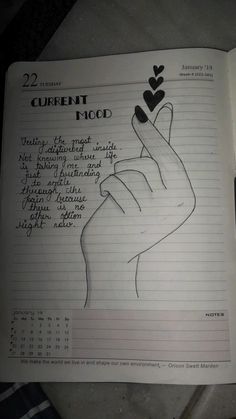 22 TUESDAY
January '19
Week 4 (022-343)
CURRENT
MOOD
Feeling the most
disturbed inside.
Not knowing where life
is taking me and
just pretending
to smile
through the
pain because
there is no
other option
right now.
january 19
NOTES
We make the world we live in and shape our own environment. – Orison Swett Marden